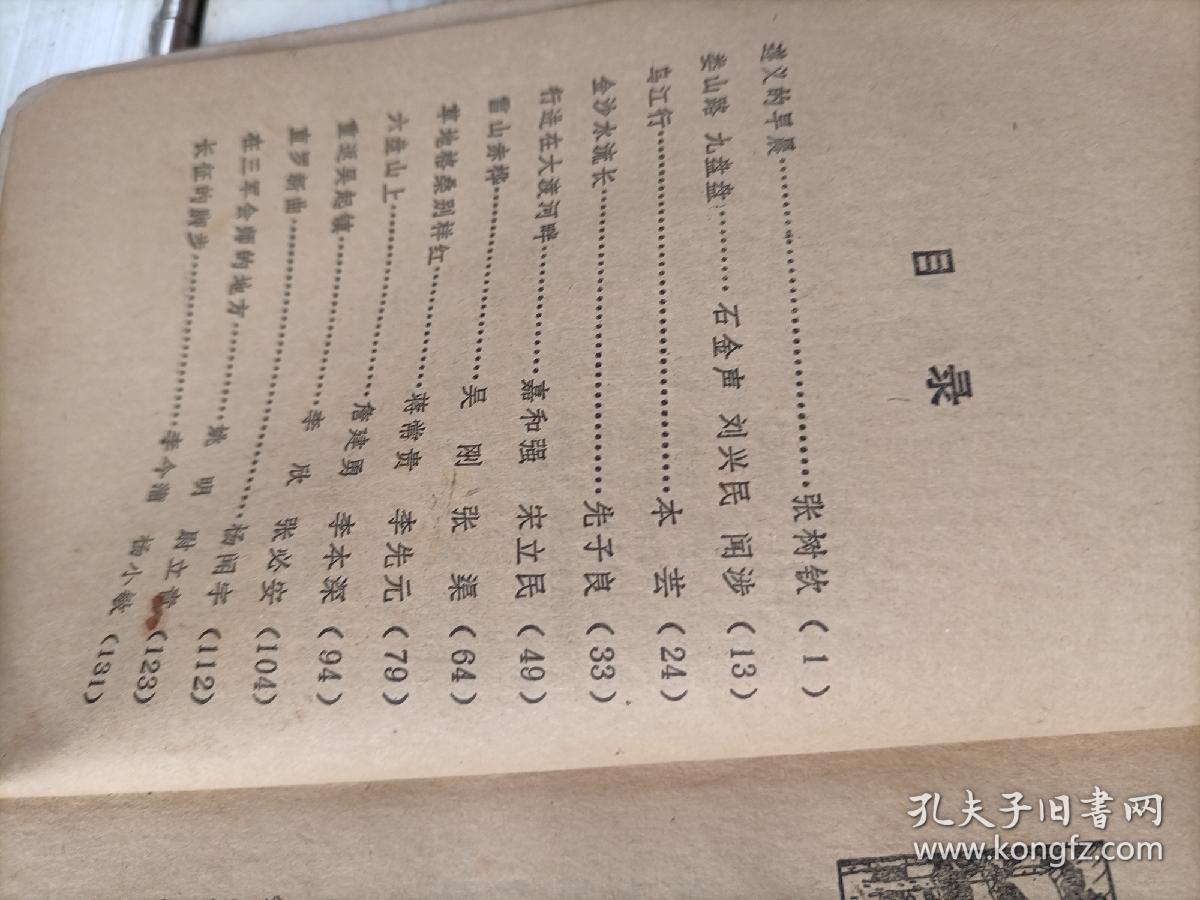 目 录
遵义的早晨……………………………张树钦（1）
娄山路 九盘盘………石金声 刘兴民 闻涉（13）
乌江行……………………………本 芸（24）
金沙水流长……………………………先子良（33）
行进在大渡河畔…………嘉和强 宋立民（49）
雪山赤桦………………吴 刚 张 渠（64）
草地格桑别样红…………蒋常贵 李先元（79）
六盘山上………………詹建勇 李本深（94）
重返吴起镇………………李 欣 张必安（104）
直罗新曲……………………………杨闻宇（112）
在三军会师的地方…………姚 明 尉立青（123）
长征的脚步………………杨小敏（131）
孔夫子旧书网
www.kongfz.com